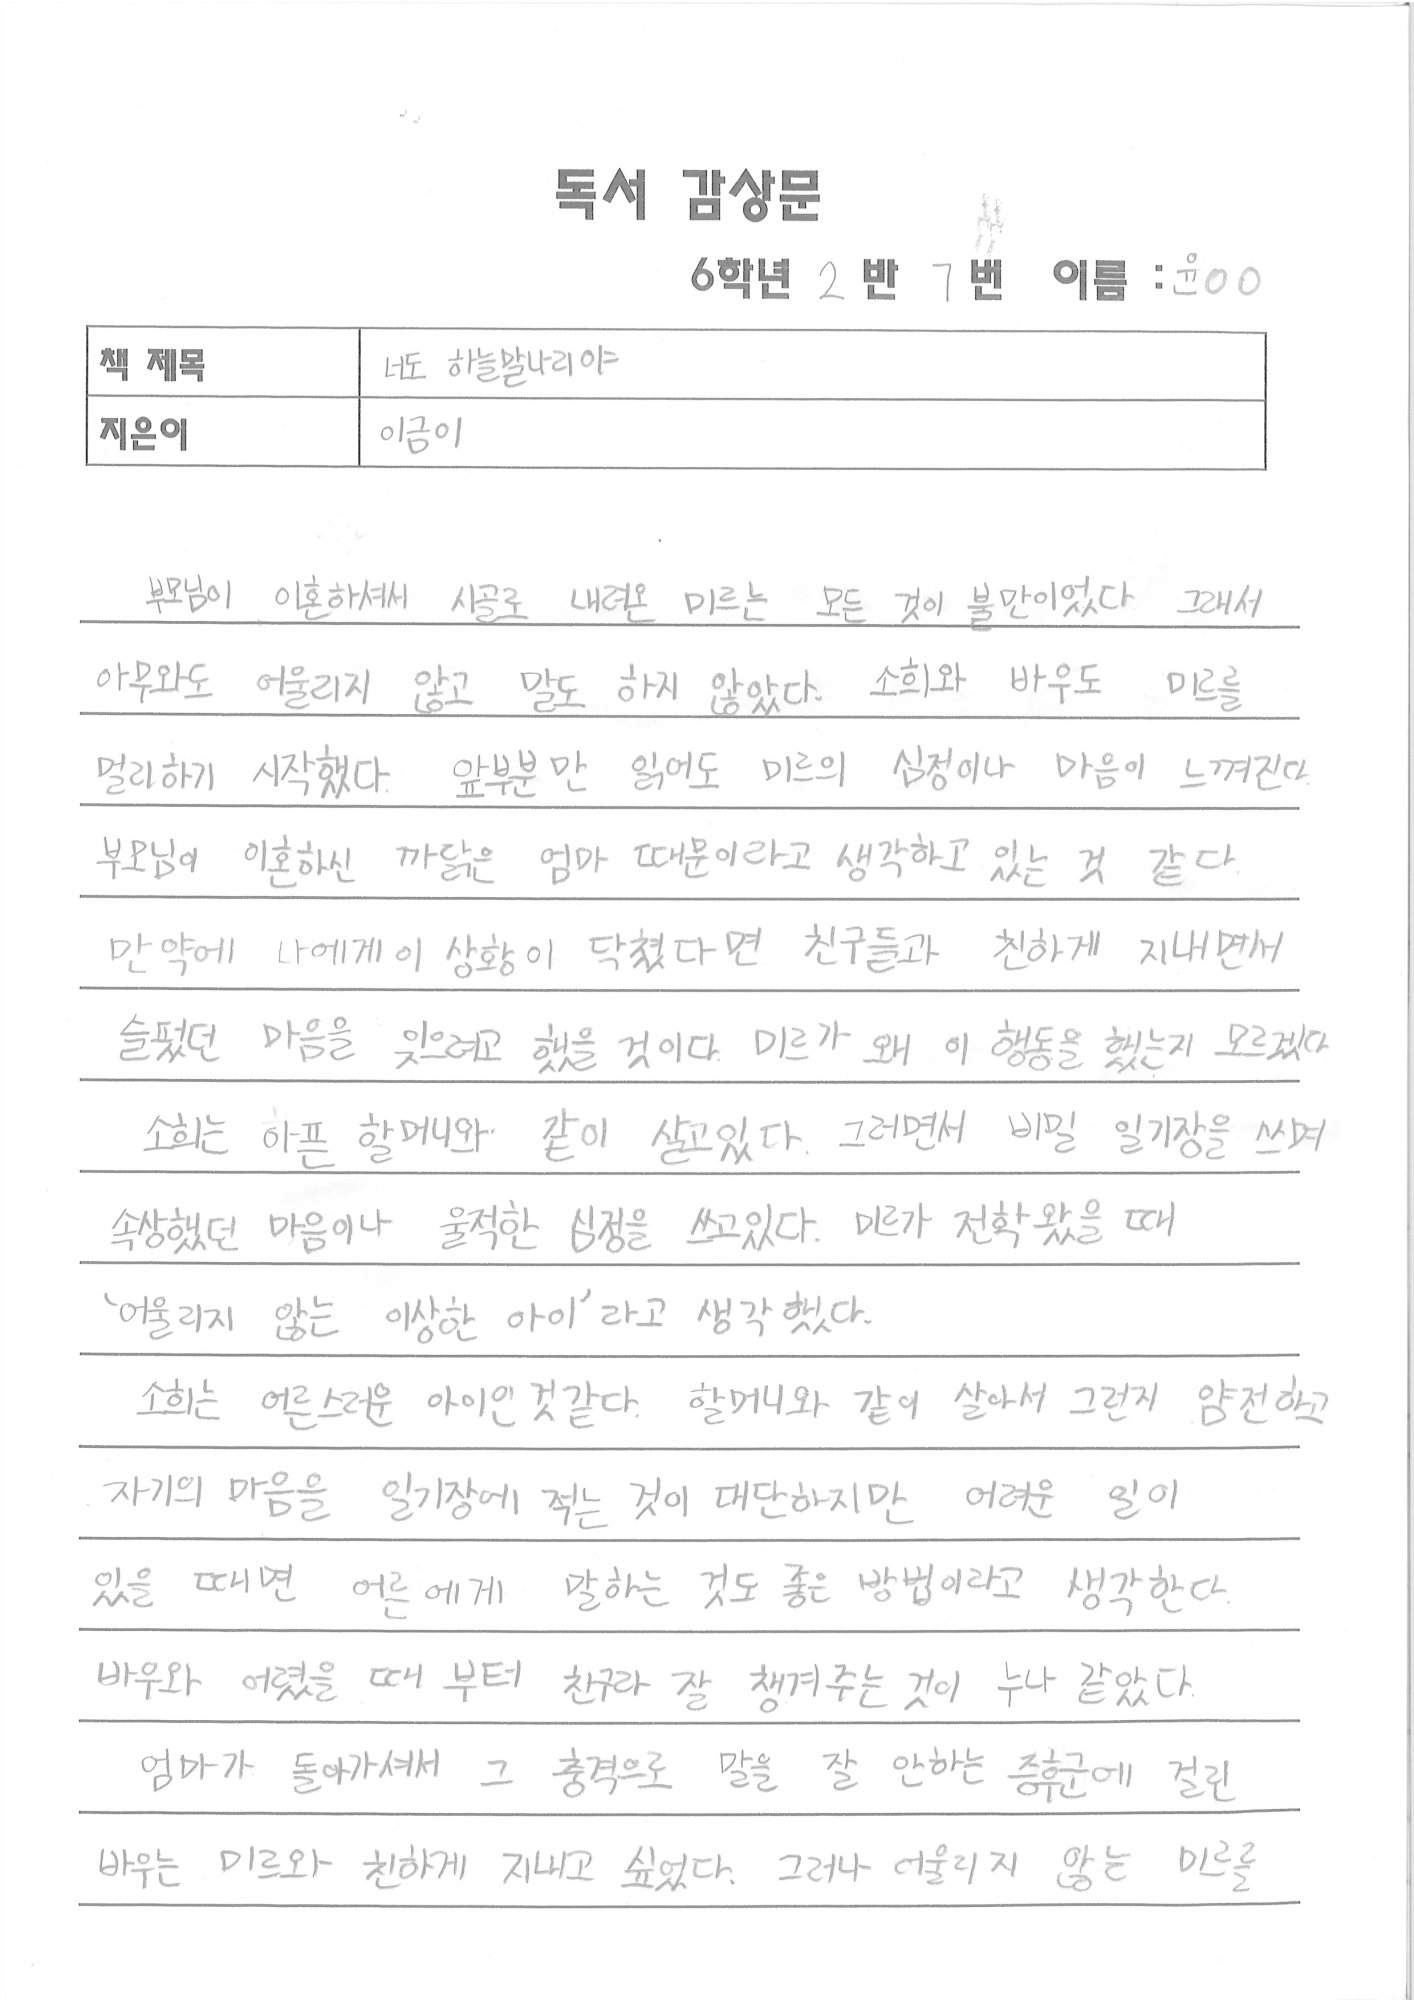 독서 감상문
6학년 2 반 7 번 이름 : 윤００
책 제목 너도 하늘말나리야
지은이 이금이
부모님이 이혼하셔서 시골로 내려온 미르는 모든 것이 불만이었다 그래서
아무와도 어울리지 않고 말도 하지 않았다. 소희와 바우도 미르를
멀리하기 시작했다. 앞부분만 읽어도 미르의 심정이나 마음이 느껴진다.
부모님이 이혼하신 까닭은 엄마 때문이라고 생각하고 있는 것 같다.
만약에 나에게 이 상황이 닥쳤다면 친구들과 친하게 지내면서
슬펐던 마음을 잊으려고 했을 것이다. 미르가 왜 이 행동을 했는지 모르겠다
소희는 아픈 할머니와 같이 살고있다. 그러면서 비밀 일기장을 쓰며
속상했던 마음이나 울적한 심정을 쓰고있다. 미르가 전학왔을 때
'어울리지 않는 이상한 아이'라고 생각했다.
소희는 어른스러운 아이인 것같다. 할머니와 같이 살아서 그런지 얌전하고
자기의 마음을 일기장에 적는 것이 대단하지만 어려운 일이
있을 때면 어른에게 말하는 것도 좋은 방법이라고 생각한다.
바우와 어렸을 때 부터 친구라 잘 챙겨주는 것이 누나 같았다.
엄마가 돌아가셔서 그 충격으로 말을 잘 안하는 증후군에 걸린
바우는 미르와 친하게 지내고 싶었다. 그러나 어울리지 않는 미르를